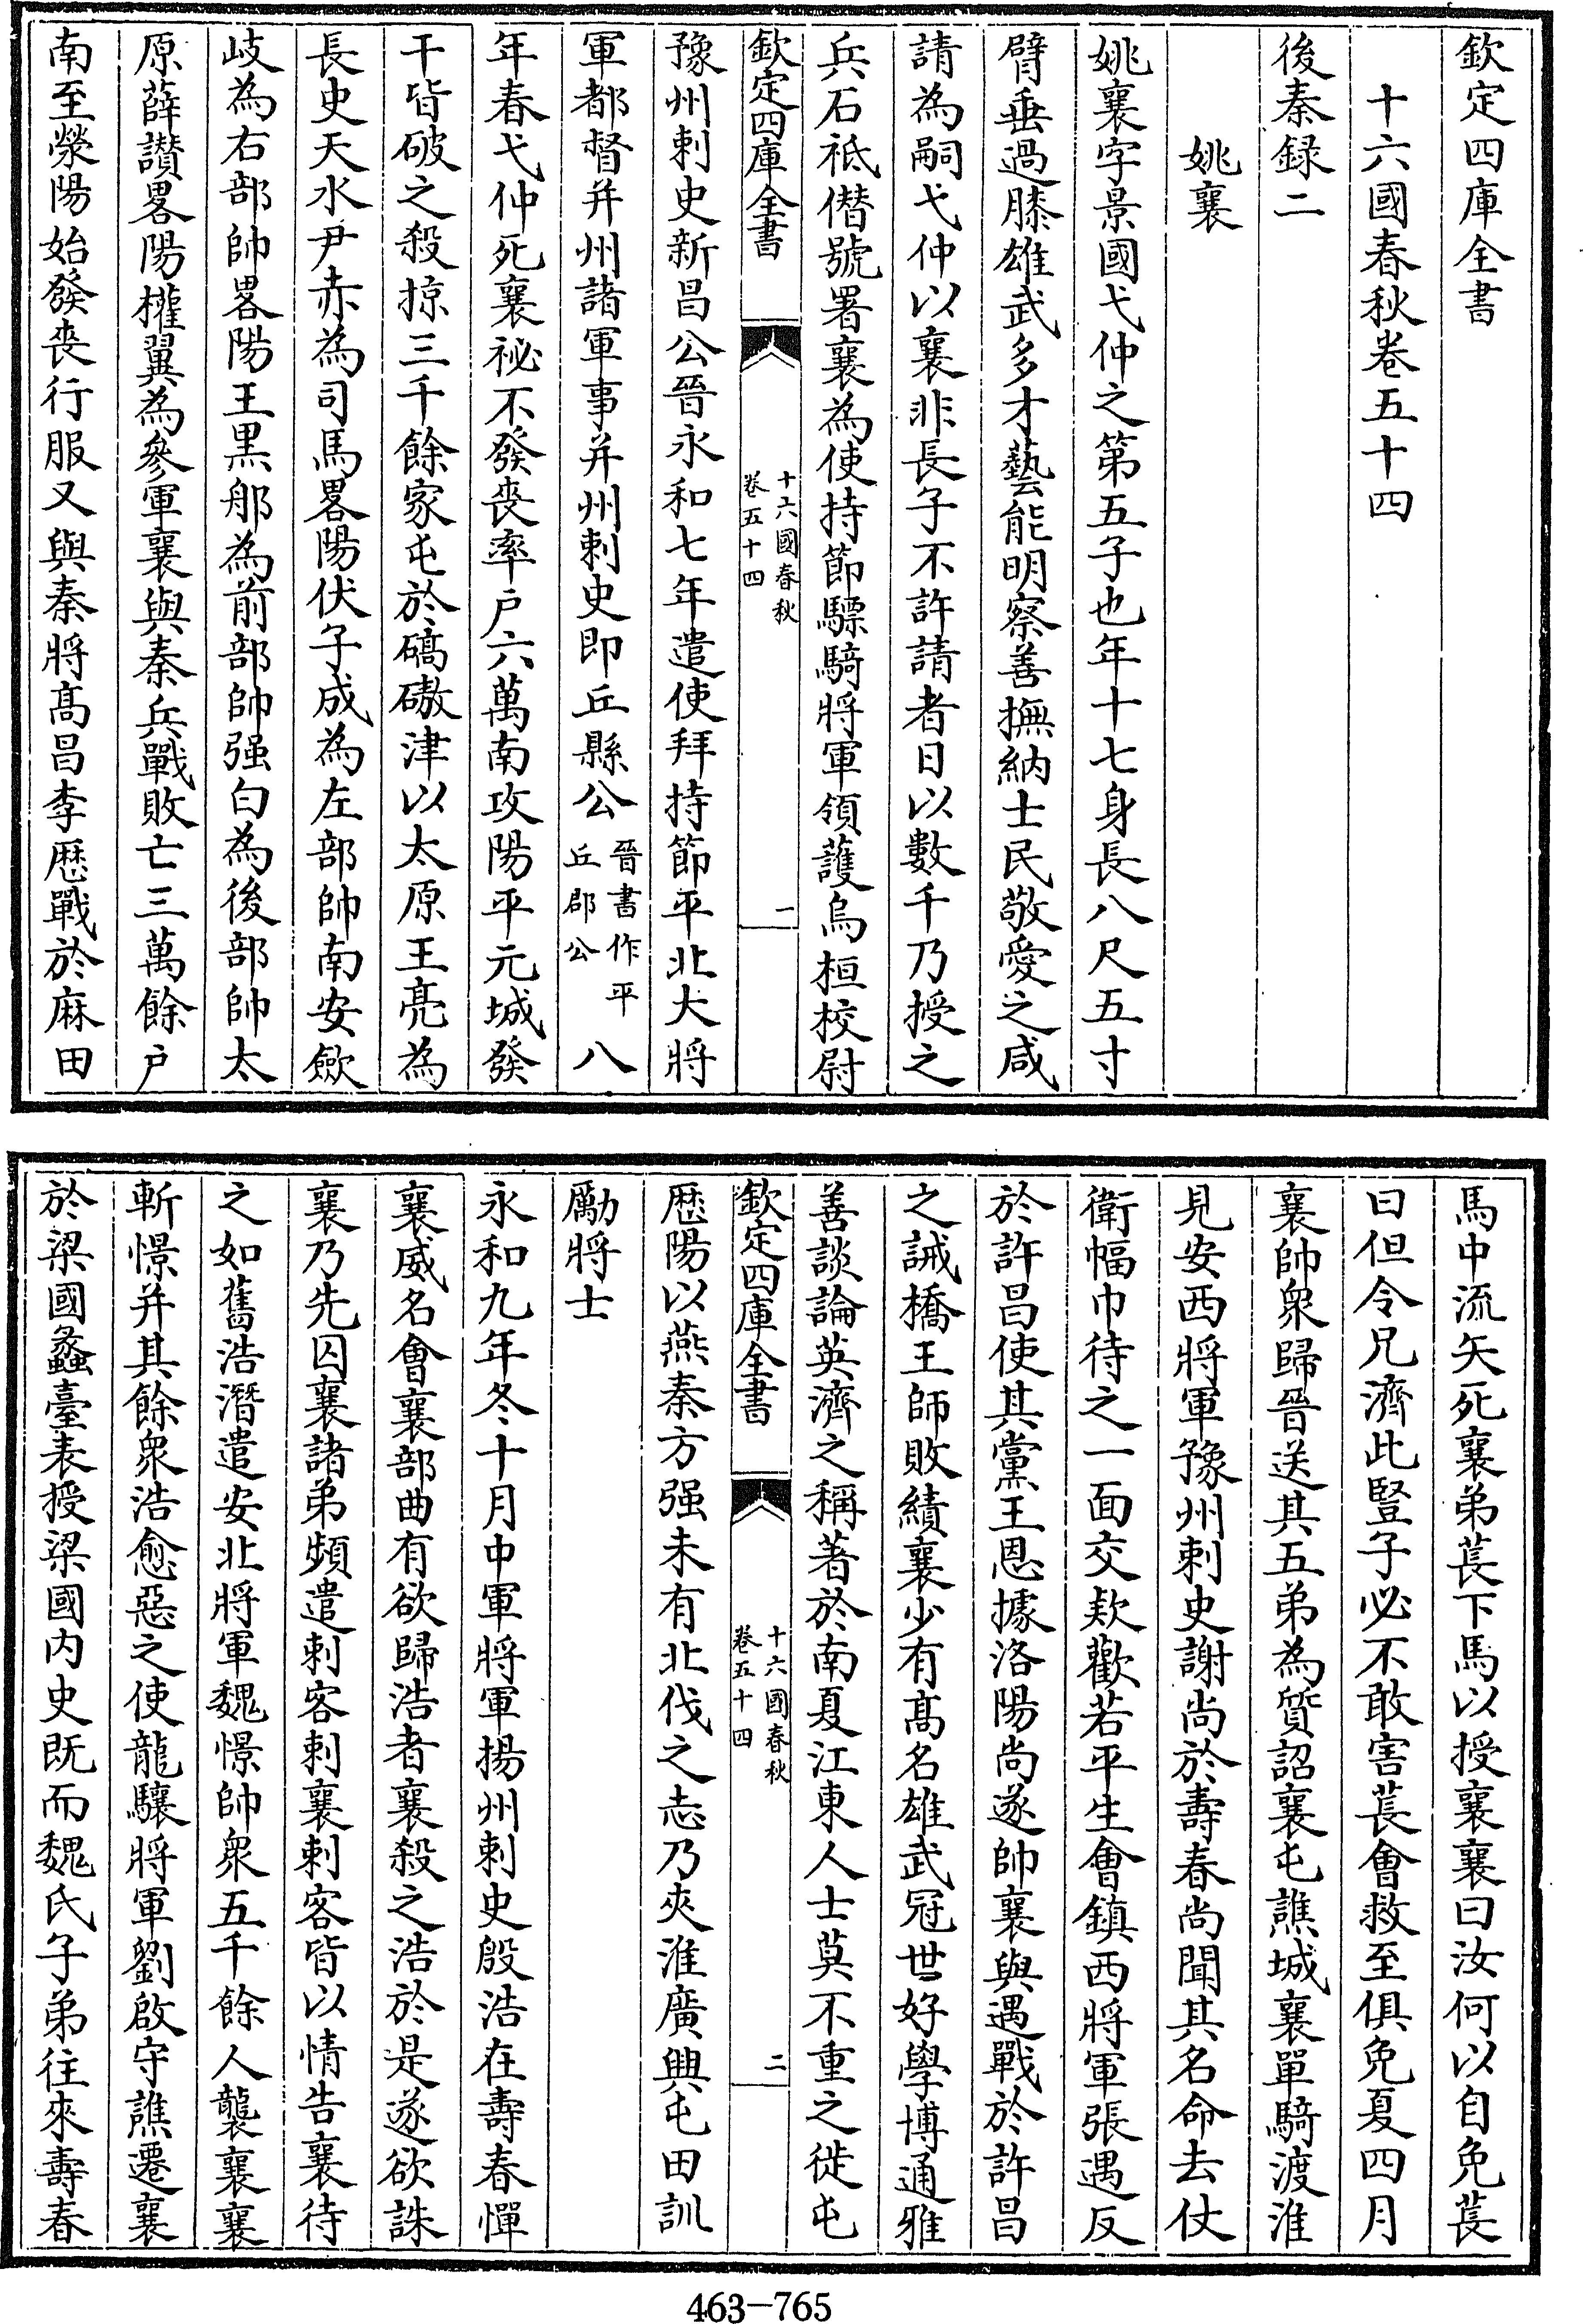 欽定四庫全書
十六國春秋卷五十四
後秦録二
姚襄
姚襄字景國弋仲之第五子也年十七身長八尺五寸
臂垂過膝雄武多才藝能明察善撫納士民敬愛之咸
請為嗣弋仲以襄非長子不許請者日以數千乃授之
兵石祗僭號署襄為使持節驃騎將軍領護烏桓校尉
欽定四庫全書
十六國春秋
卷五十四
一
豫州刺史新昌公晉永和七年遣使拜持節平北大將
軍都督并州諸軍事并州刺史即丘縣公晉書作平丘郡公八
年春弋仲死襄祕不發喪率户六萬南攻陽平元城發
干皆破之殺掠三千餘家屯於碻磝津以太原王亮為
長史天水尹赤為司馬畧陽伏子成為左部帥南安斂
岐為右部帥畧陽王黒郍為前部帥强白為後部帥太
原薛讚畧陽權翼為參軍襄與秦兵戰敗亡三萬餘户
南至滎陽始發喪行服又與秦將髙昌李歴戰於麻田
馬中流矢死襄弟萇下馬以授襄襄曰汝何以自免萇
曰但令兄濟此豎子必不敢害萇會救至俱免夏四月
襄帥衆歸晉送其五弟為質詔襄屯譙城襄單騎渡淮
見安西將軍豫州刺史謝尚於壽春尚聞其名命去仗
衛幅巾待之一面交欵歡若平生會鎮西將軍張遇反
於許昌使其黨王恩據洛陽尚遂帥襄與遇戰於許昌
之誡橋王師敗績襄少有髙名雄武冠世好學博通雅
善談論英濟之稱著於南夏江東人士莫不重之徙屯
欽定四庫全書
十六國春秋
卷五十四
二
歴陽以燕秦方强未有北伐之志乃夾淮廣興屯田訓
勵將士
永和九年冬十月中軍將軍揚州刺史殷浩在壽春憚
襄威名會襄部曲有欲歸浩者襄殺之浩於是遂欲誅
襄乃先囚襄諸弟頻遣刺客刺襄刺客皆以情告襄待
之如舊浩潛遣安北將軍魏憬帥衆五千餘人襲襄襄
斬憬并其餘衆浩愈惡之使龍驤將軍劉啟守譙遷襄
於梁國蠡臺表授梁國内史既而魏氏子弟往來壽春
463-765